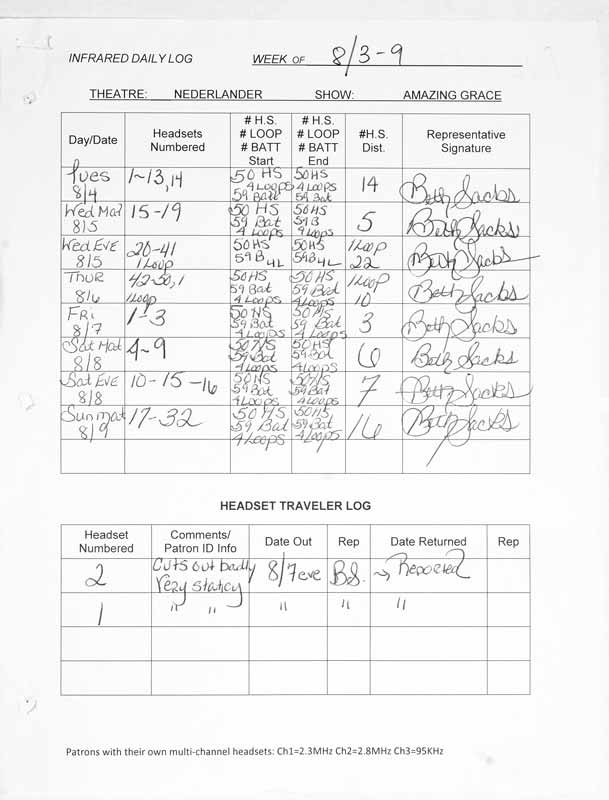 INFRARED DAILY LOG WEEK OF 8/3-9
THEATRE: NEDERLANDER SHOW: AMAZING GRACE
Day/Date Headsets Numbered # H.S. # LOOP # BATT Start # H.S. # LOOP # BATT End #H.S. Dist. Representative Signature
Tues 8/4 1-13,14 50 HS 4 Loops 59 Batt 50 HS 4 Loops 59 Bat 14 Beth Sacks
Wed Mat 8/5 15-19 50 HS 59 Bat 4 Loops 50 HS 59 B 4 Loops 5 Beth Sacks
Wed EVE 8/5 20-41 1 Loop 50 HS 59 B 4L 50 HS 59 B 4L 1 Loop 22 Beth Sacks
Thur 8/6 42-50,1 1 Loop 50 HS 59 Bat 4 Loops 50 HS 59 Bat 4 Loops 1 Loop 10 Beth Sacks
Fri 8/7 1-3 50 HS 59 Bat 4 Loops 50 HS 59 Bat 4 Loops 3 Beth Sacks
Sat Mat 8/8 4-9 50 HS 59 Bat 4 Loops 50 HS 59 Bat 4 Loops 6 Beth Sacks
Sat Eve 8/8 10-15-16 50 HS 59 Bat 4 Loops 50 HS 59 Bat 4 Loops 7 Beth Sacks
Sun mat 8/9 17-32 50 HS 59 Bat 4 Loops 50 HS 59 Bat 4 Loops 16 Beth Sacks
HEADSET TRAVELER LOG
Headset Numbered Comments/ Patron ID Info Date Out Rep Date Returned Rep
2 Cuts out badly Very staticy 8/7 eve B.S. → Reported
1 " " " " "
Patrons with their own multi-channel headsets: Ch1=2.3MHz Ch2=2.8MHz Ch3=95KHz